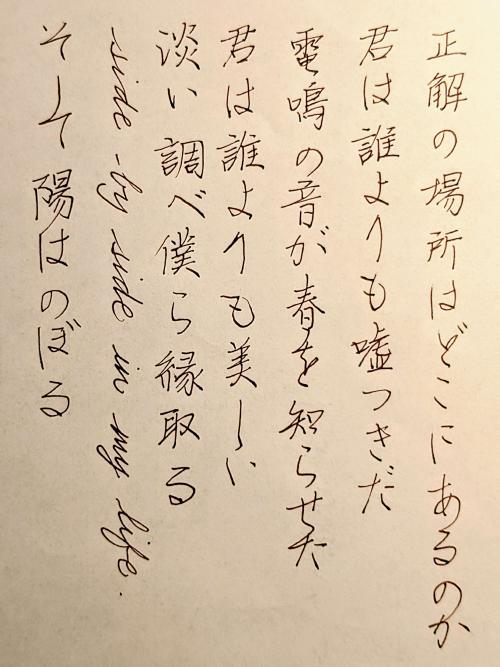 正解の場所はどこにあるのか
君は誰よりも嘘つきだ
雷鳴の音が春を知らせた
君は誰よりも美しい
淡い調べ僕ら縁取る
side-by side in my life.
そして陽はのぼる